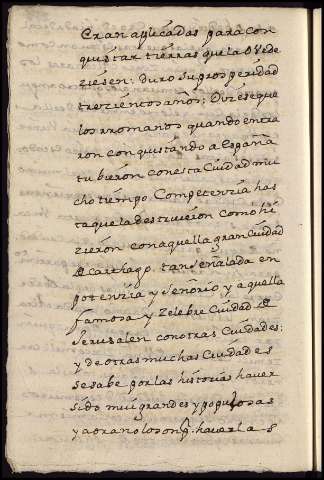 Eran aplicadas para con
quistar tierras que la obede
ziesen: duro su prosperidad
trezientos años: Dizese que
los rromanos quando entra
ron conquistando a España
tubieron con esta Ciudad mu
cho tiempo Competenzia has
ta que la destruieron como hi
zieron con aquella gran Ciudad
de Carthago, tan señalada en
potenzia y Señorio y aquella
famosa y Zelebre Ciudad de
Jerusalen con otras Ciudades:
y de otras muchas Ciudades
se sabe por las historias haver
sido mui grandes y populosas
y aora no lo son, p. haverlas